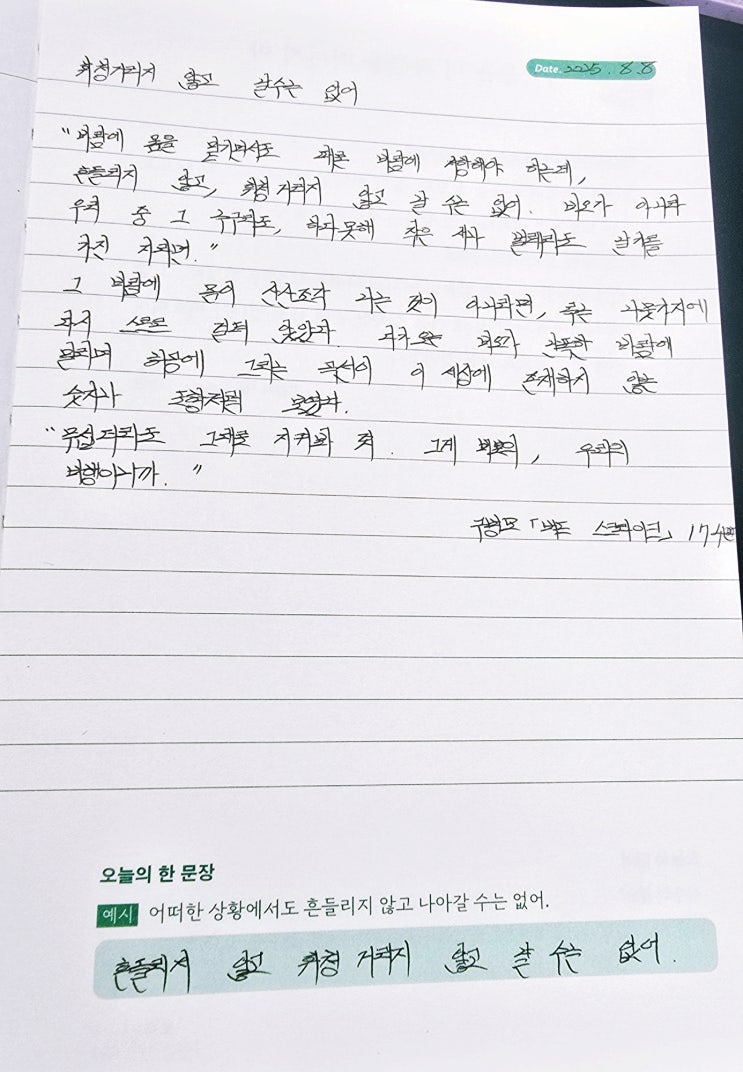 Date. 2025. 8. 8
휘청거리지 않고 갈수는 없어
"바람에 몸을 맡기면서도 때론 바람에 저항해야 하는데,
흔들리지 않고, 휘청거리지 않고 갈 수는 없어. 비오가 아니라
우리 중 그 누구라도, 하다못해 작은 새나 벌레라도 날개를
가진 자라면."
그 바람에 몸이 산산조각 나는 것이 아니라면, 루는 나뭇가지에
앉았다. 비오가 난폭한 바람에
밀리며 허공에 그리는 곡선이 이 세상에 존재하지 않는
숫자나 도형처럼 보였다.
"무섭더라도 그대로 지켜봐 줘. 그게 비오의, 우리의
비행이니까."
구병모 「버드 스트라이크」 17쪽
오늘의 한 문장
예시 어떠한 상황에서도 흔들리지 않고 나아갈 수는 없어.
흔들리지 않고 휘청거리지 않고 갈 수는 없어.